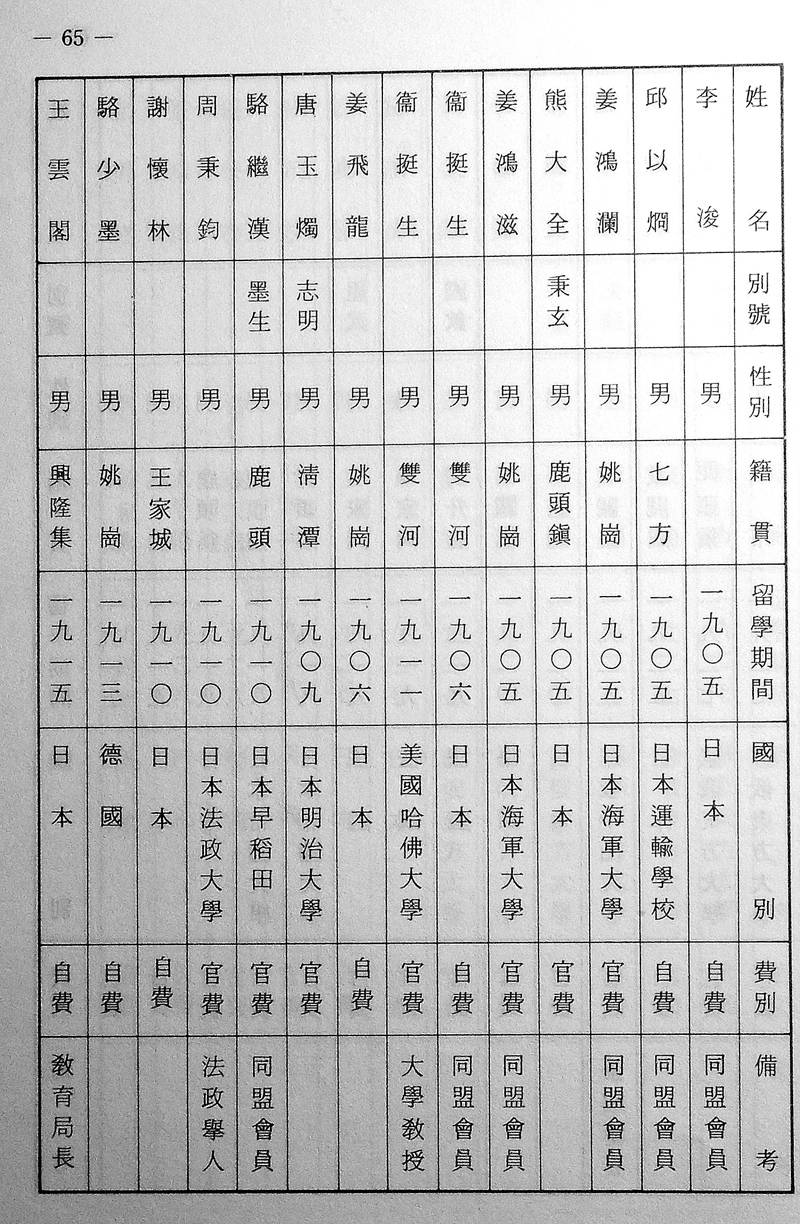 — 65 —
姓名 別號 性別 籍貫 留學期間 國別 費別 備考
李浚 男 一九〇五 日本 自費 同盟會員
邱以烱 男 七方 一九〇五 日本運輸學校 自費 同盟會員
姜鴻瀾 男 姚崗 一九〇五 日本海軍大學 官費 同盟會員
熊大全 秉玄 男 鹿頭鎮 一九〇五 日本 官費
姜鴻滋 男 姚崗 一九〇五 日本海軍大學 官費 同盟會員
衞挺生 男 雙河 一九〇六 日本 自費 同盟會員
衞挺生 男 雙河 一九一一 美國哈佛大學 官費 大學教授
姜飛龍 男 姚崗 一九〇六 日本 自費
唐玉燭 志明 男 清潭 一九〇九 日本明治大學 官費
駱繼漢 墨生 男 鹿頭 一九一〇 日本早稻田大學 官費 同盟會員
周秉鈞 男 一九一〇 日本法政大學 官費 法政舉人
謝懷林 男 王家城 一九一〇 日本 自費
駱少墨 男 姚崗 一九一三 德國 自費
王雲閣 男 興隆集 一九一五 日本 自費 教育局長